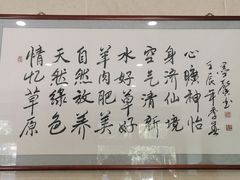 心旷神怡
身济仙境
空气清新
水好草好
羊肉肥美
自然放养
天然绿色
情忆草原
壬辰年季夏